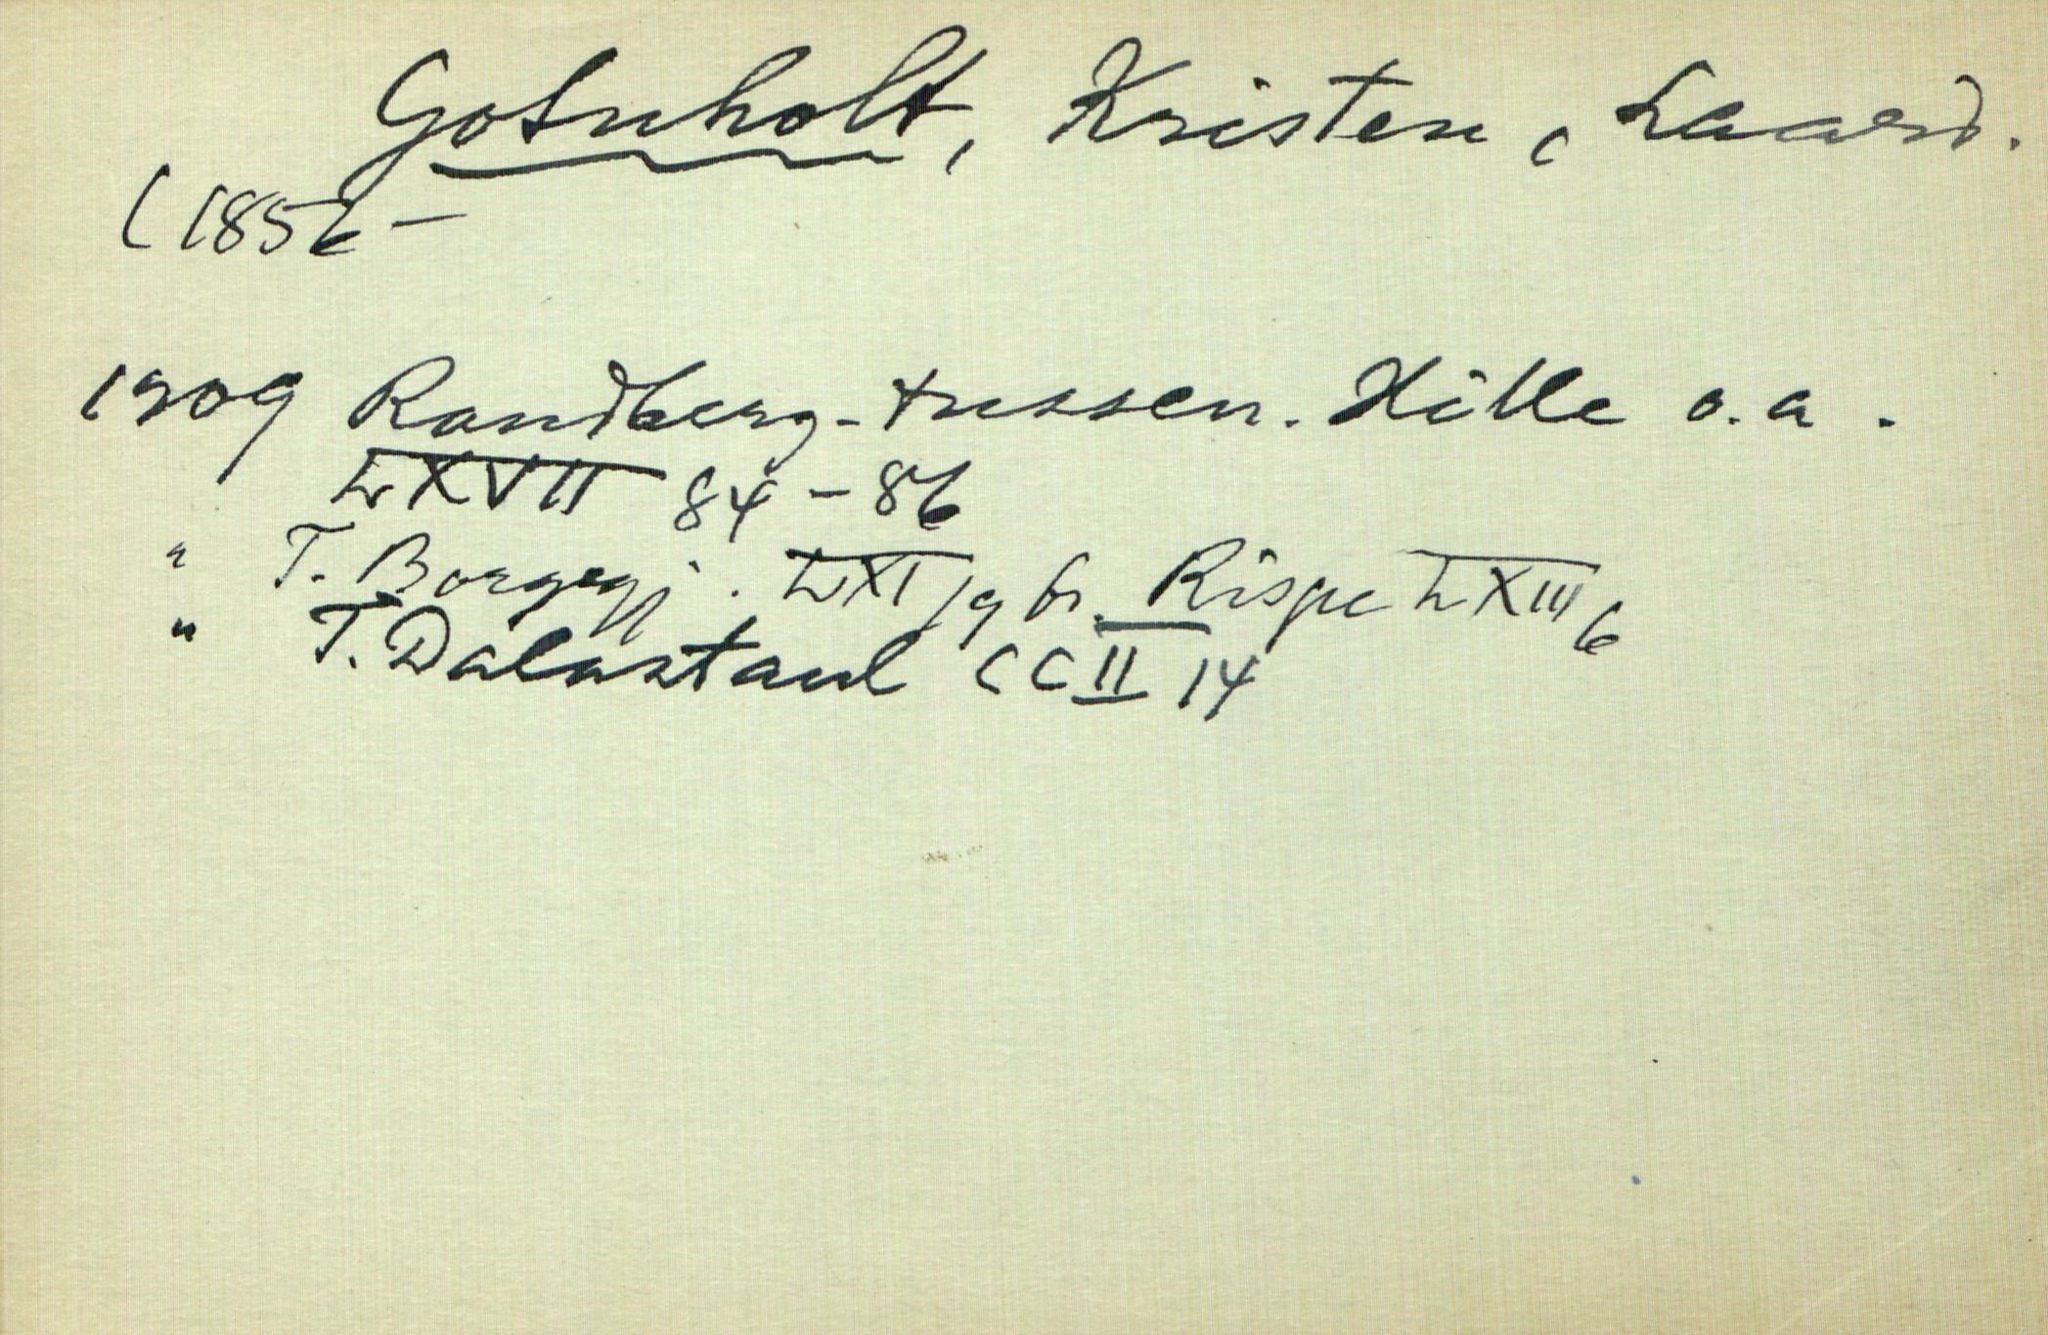 Gotuholt, Kristen, Laard.
(1856 –
1909 Randberg-tussen. Hille o.a.
LXVII 84 – 86
" T. Borgegj. LXI 19 fr. Rispe LXIII 6
" T. Dalastaul CCII 14